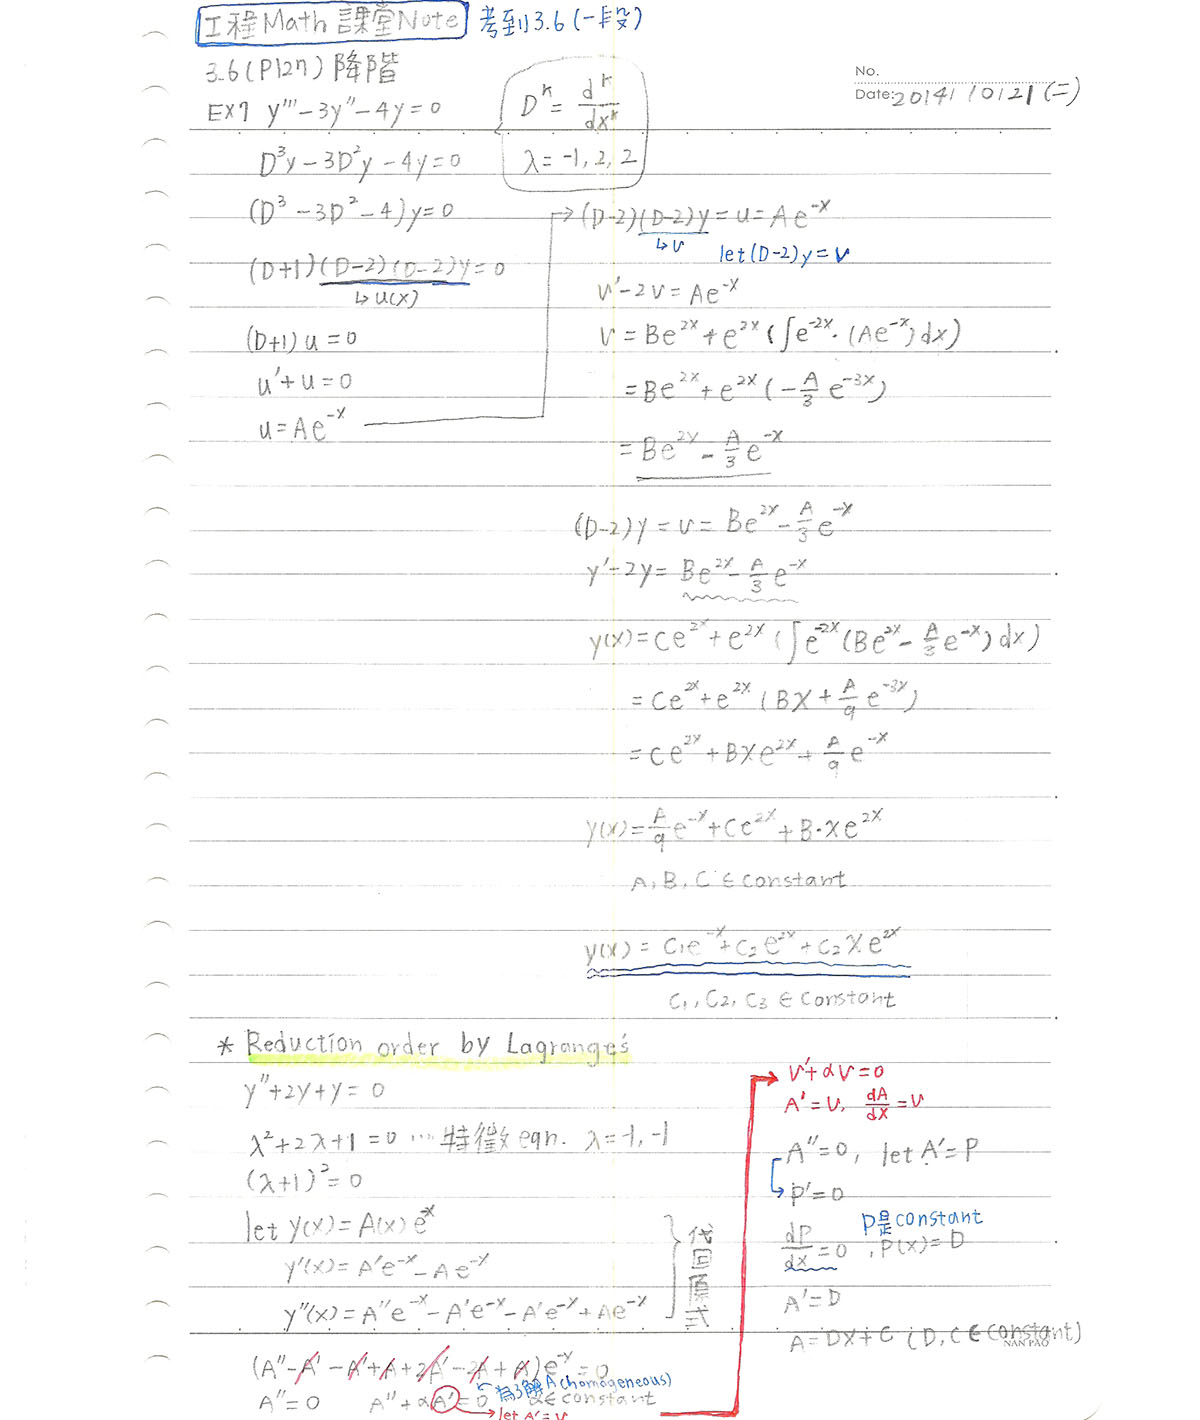 工程Math 課堂Note 考到3.6(一段)
3.6(P127) 降階
No.
Date: 2014/10/21(二)
EX7 y'''-3y''-4y=0
D^k = d^k/dx^k
λ=-1, 2, 2
D³y-3D²y-4y=0
(D³-3D²-4)y=0
(D+1)(D-2)(D-2)y=0
↳u(x)
(D+1)u=0
u'+u=0
u=Ae^-x
→(D-2)(D-2)y=u=Ae^-x
↳v let(D-2)y=v
v'-2v=Ae^-x
v=Be^2x+e^2x(∫e^-2x·(Ae^-x)dx)
=Be^2x+e^2x(-A/3 e^-3x)
=Be^2x-A/3 e^-x
(D-2)y=v=Be^2x-A/3 e^-x
y'-2y=Be^2x-A/3 e^-x
y(x)=Ce^2x+e^2x(∫e^-2x(Be^2x-A/3 e^-x)dx)
=Ce^2x+e^2x(Bx+A/9 e^-3x)
=Ce^2x+Bxe^2x+A/9 e^-x
y(x)=A/9 e^-x+Ce^2x+B·xe^2x
A, B, C ∈ constant
y(x)=C₁e^-x+C₂e^2x+C₂xe^2x
C₁, C₂, C₃ ∈ constant
* Reduction order by Lagrange's
y''+2y+y=0
λ²+2λ+1=0 ... 特徵eqn. λ=-1,-1
(λ+1)²=0
let y(x)=A(x)e^-x
y'(x)=A'e^-x-Ae^-x
y''(x)=A''e^-x-A'e^-x-A'e^-x+Ae^-x
代回原式
(A''-A'-A'+A+2A'-2A+A)e^-x=0
A''=0 A''+αA'=0 α∈constant
為了解A(homogeneous)
let A'=v
→v'+αv=0
A'=v, dA/dx=v
A''=0, let A'=P
↳P'=0
P是constant
dP/dx=0, P(x)=D
A'=D
A=DX+C (D, C∈constant)
NAN PAO